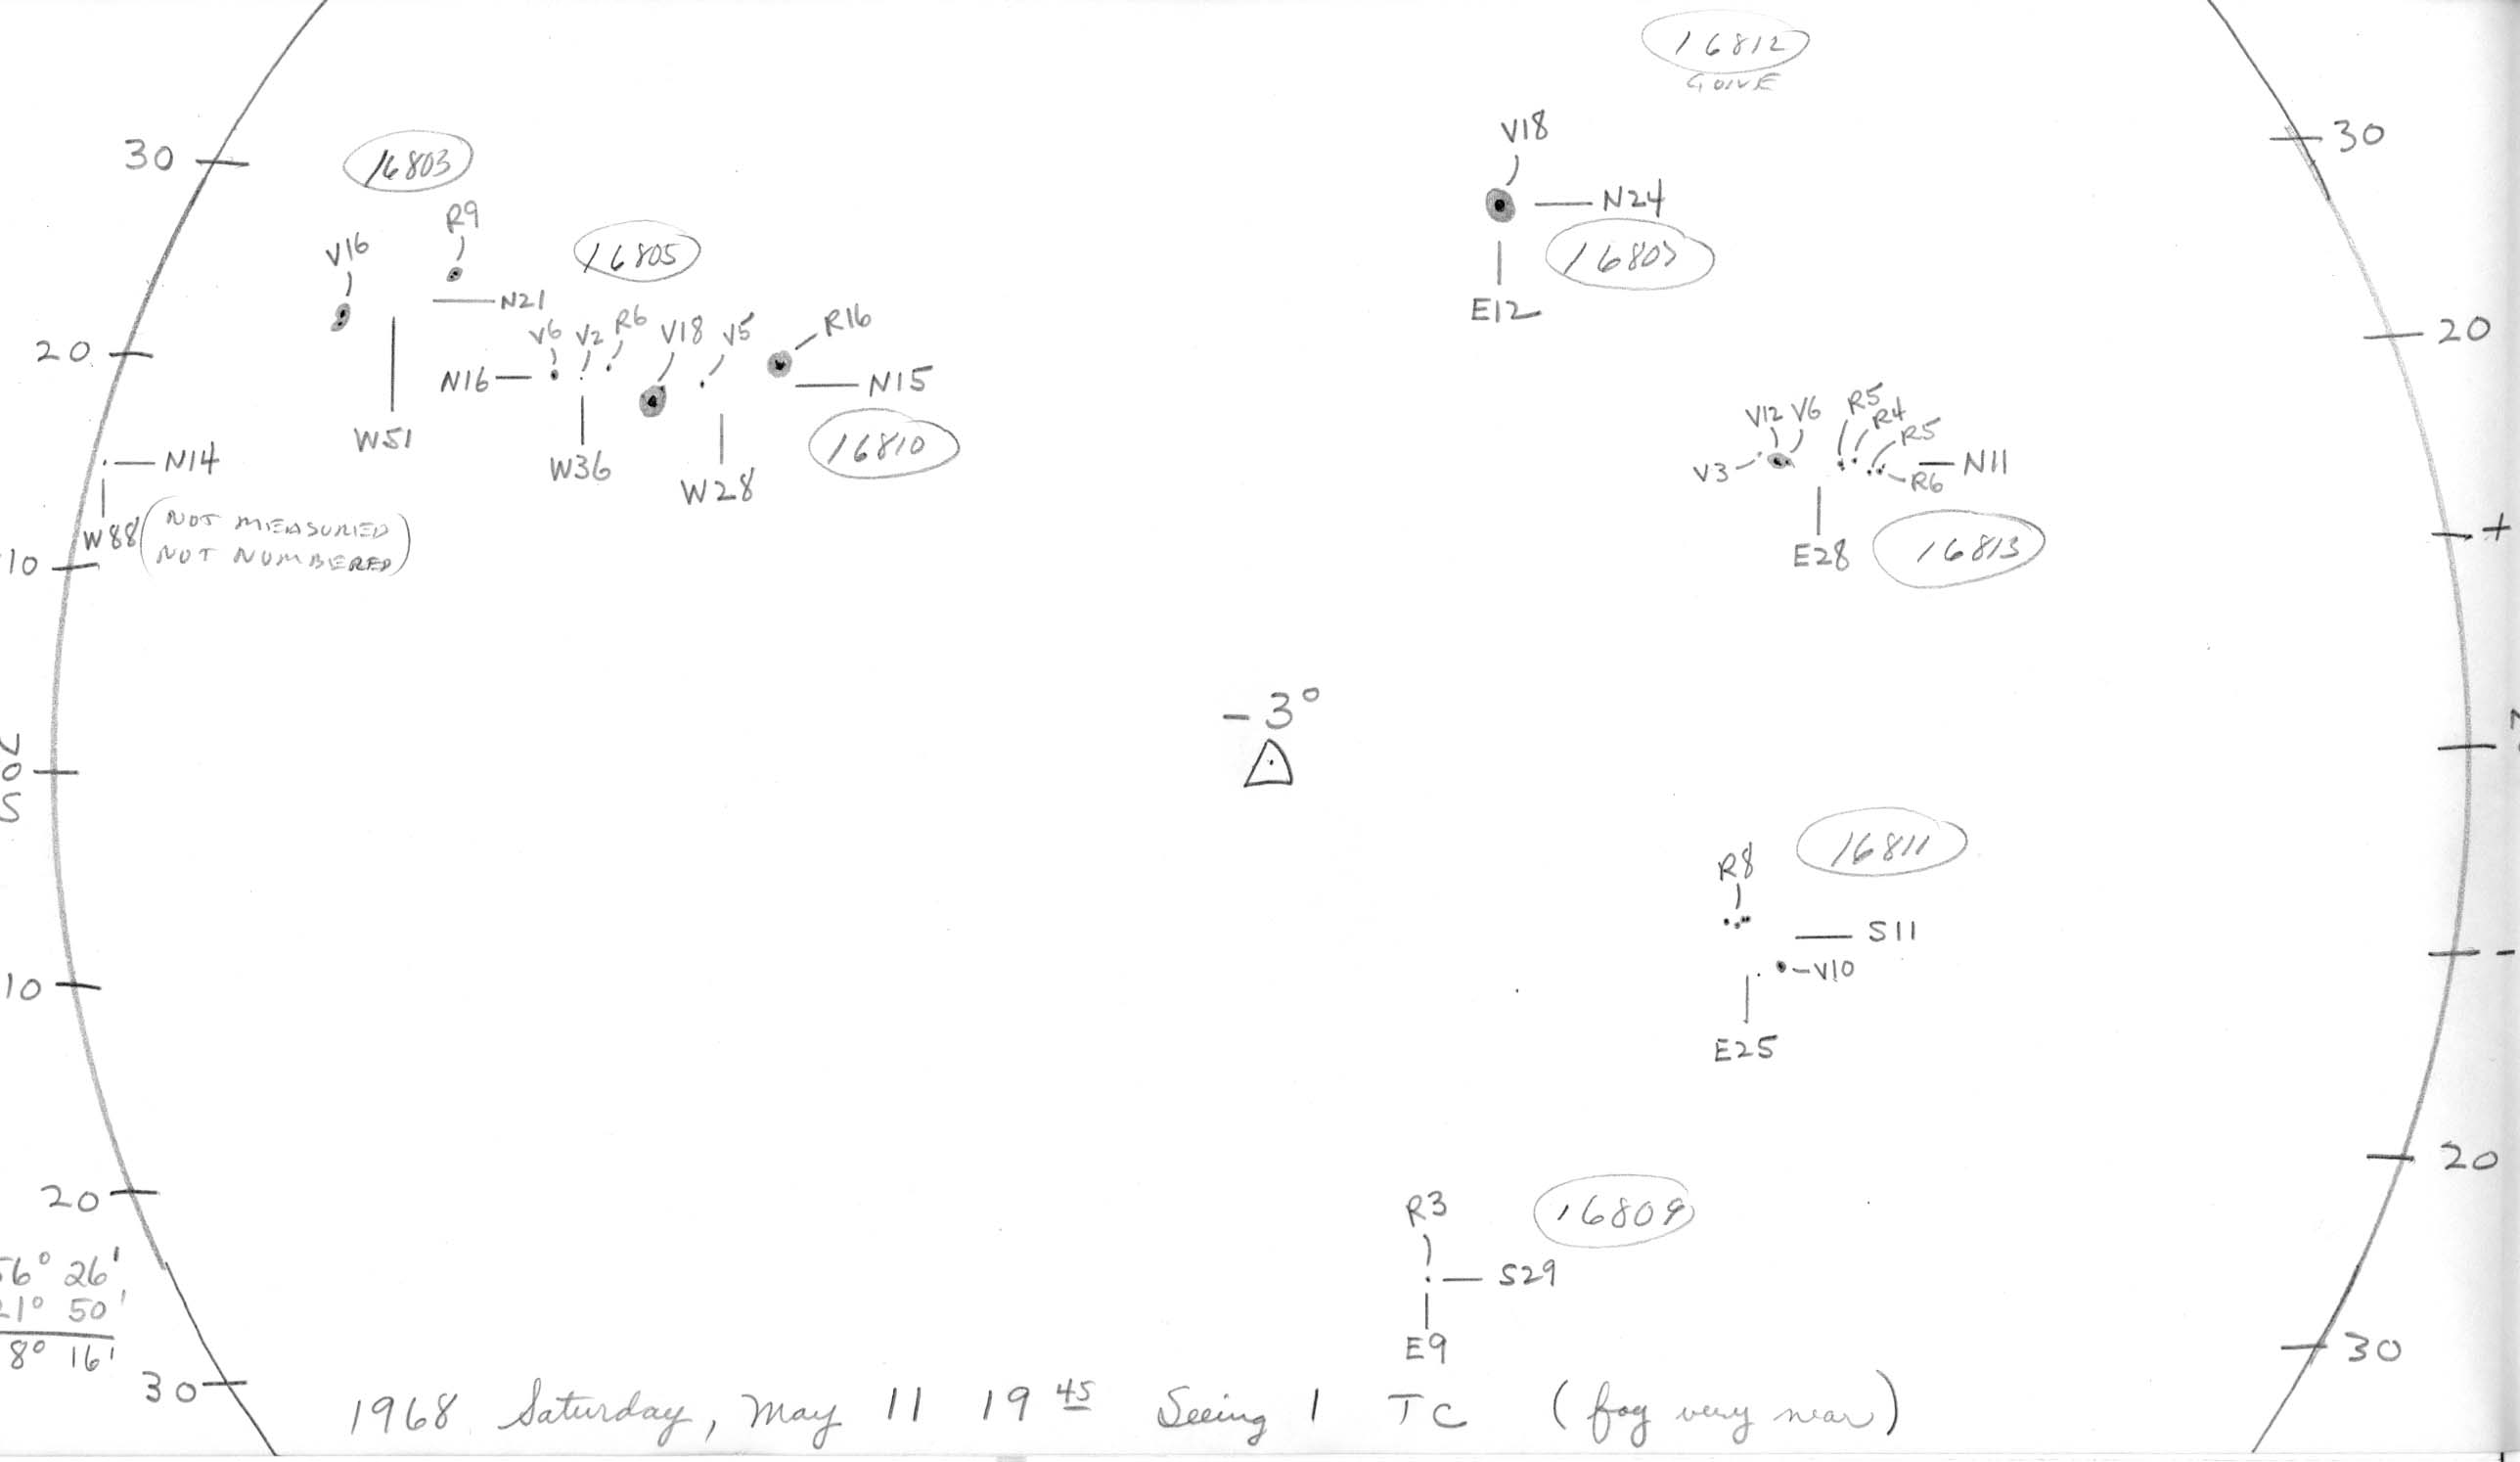 16812
GONE
V18
30
30
16803
N24
R9
V16
16805
E12
N21
20
20
V6 V2 R6 V18 V5 R16
N16
N15
R5
V12 V6
R4
R5
W51
16810
N14
W36
V3
N11
R6
W28
W88 (NOT MEASURED
NOT NUMBERED)
E28
16813
+
10
-3°
0
S
R8
16811
S11
V10
10
-
E25
20
20
R3
16809
S29
6° 26'
1° 50'
8° 16'
E9
30
30
1968 Saturday, May 11 19 45 Seeing 1 TC (fog very near)